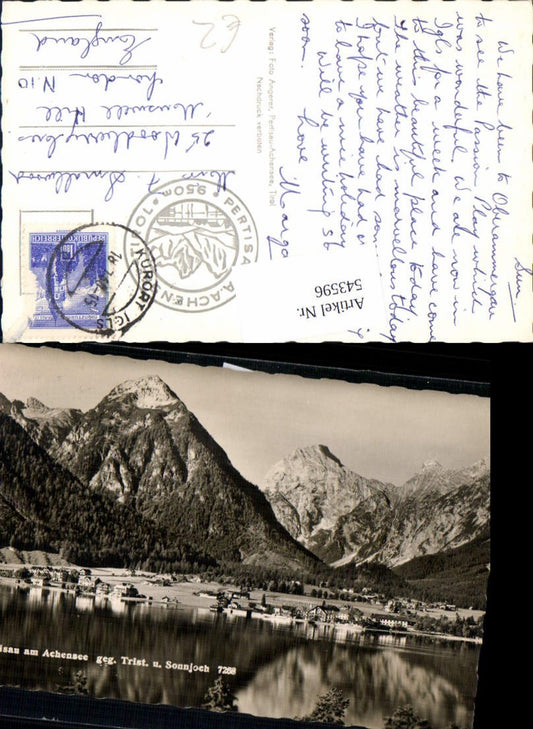 Sun.
We have been to Oberammergau
to see the Passion Play which
was wonderful. We are now in
Igls for a week and have come
to this beautiful place today.
The weather is marvellous today
but we have had some
I hope you have had a
to have a nice holiday
Will be writing
soon.
Love Margo
Verlag: Foto Angerer, Pertisau-Achensee, Tirol
Nachdruck verboten
Smallwood
25 Woodberry
Muswell Hill
London N.10
England
€2
PERTISAU A. ACHENSEE TIROL
950m
KURORT IGLS
REPUBLIK ÖSTERREICH
Artikel Nr.
543596
isau am Achensee geg. Trist. u. Sonnjoch 7268